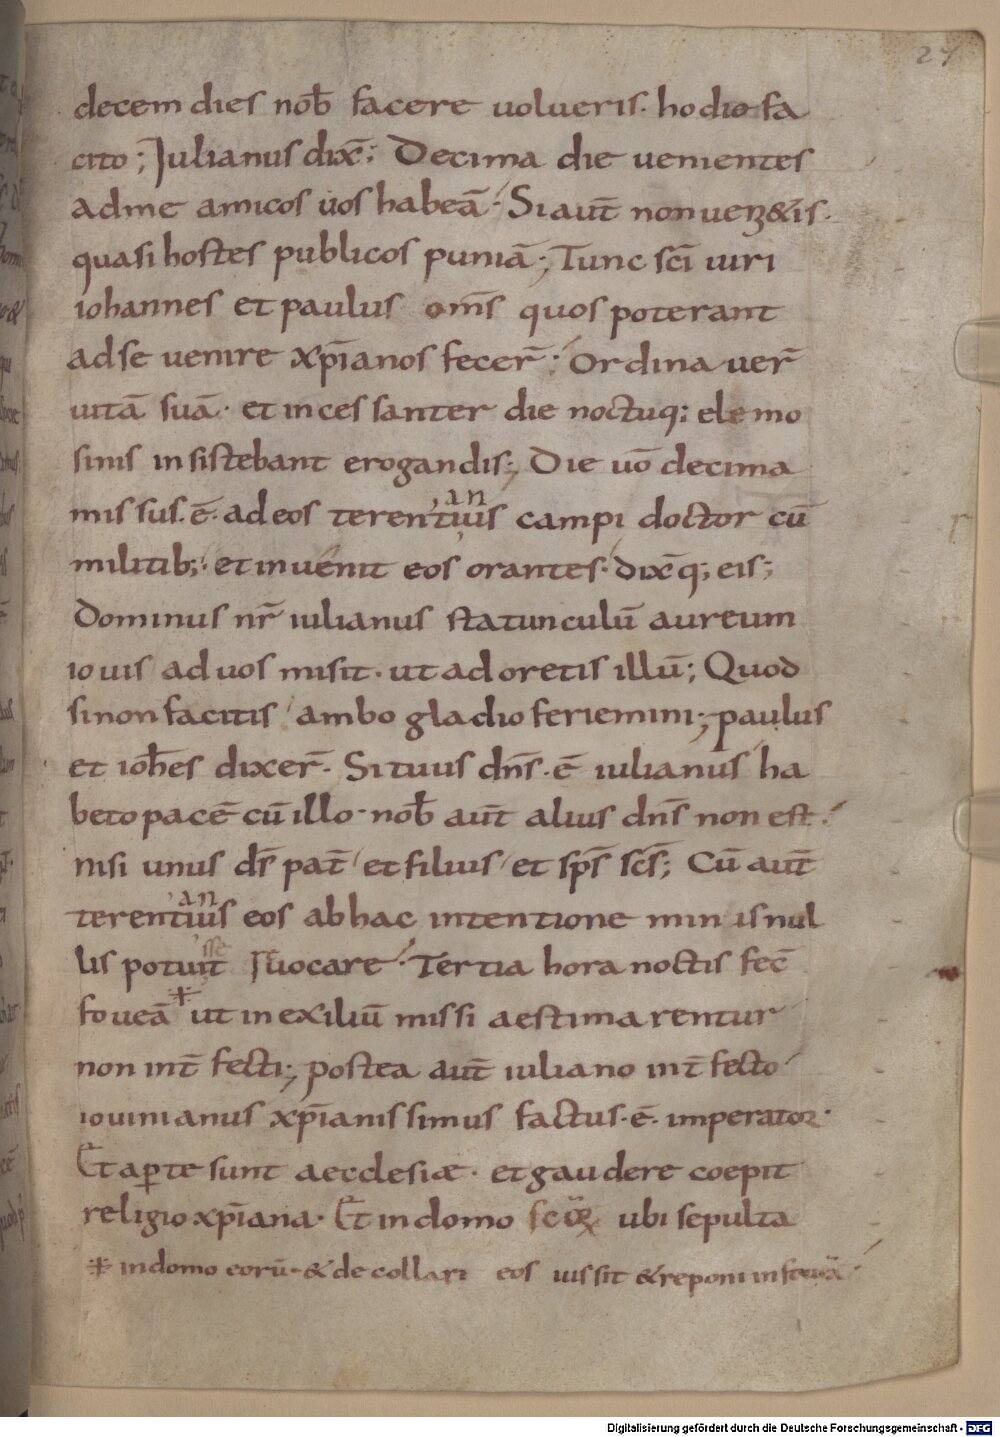 27
decem dies nob̄ facere uolueris· hodie fa
cito; Iulianus dix̄; Decima die uenientes
ad me amicos uos habeā· Si aut̄ non ueneritis·
quasi hostes publicos puniā·, Tunc sc̄i uiri
iohannes et paulus om̄s quos poterant
ad se uenire xp̄ianos fecer̄·; Ordinauer̄
uitā suā· et incessanter die noctuq; elemo
sinis insistebant erogandis·, Die uō decima
missus·ē·ad eos terentius an campi doctor cū
militib;· et inuenit eos orantes· dix̄q; eis;
Dominus nr̄ iulianus statunculū aureum
iouis ad uos misit· ut adoretis illū; Quod
si non facitis ambo gladio feriemini·, paulus
et ioh̄es dixer̄· Si tuus dn̄s·ē iulianus ha
beto pacē cū illo· nob̄ aut̄ alius dn̄s non est·
nisi unus d̄s pat̄ et filius et sp̄s sc̄s; Cū aut̄
terentius an eos ab hac intentione minis nul
lis potuit sse reuocare· Tertia hora noctis fec̄
foueā ut in exiliū missi aestimarentur
non int̄fecti·, postea aut̄ iuliano int̄fecto
iouinianus xp̄ianissimus factus·ē· imperator·
Et aperte sunt aecclesiæ· et gaudere coepit
religio xp̄iana· Et in domo ubi sepulta
in domo eorū· & decollari eos iussit & reponi in foueā
Digitalisierung gefördert durch die Deutsche Forschungsgemeinschaft - DFG